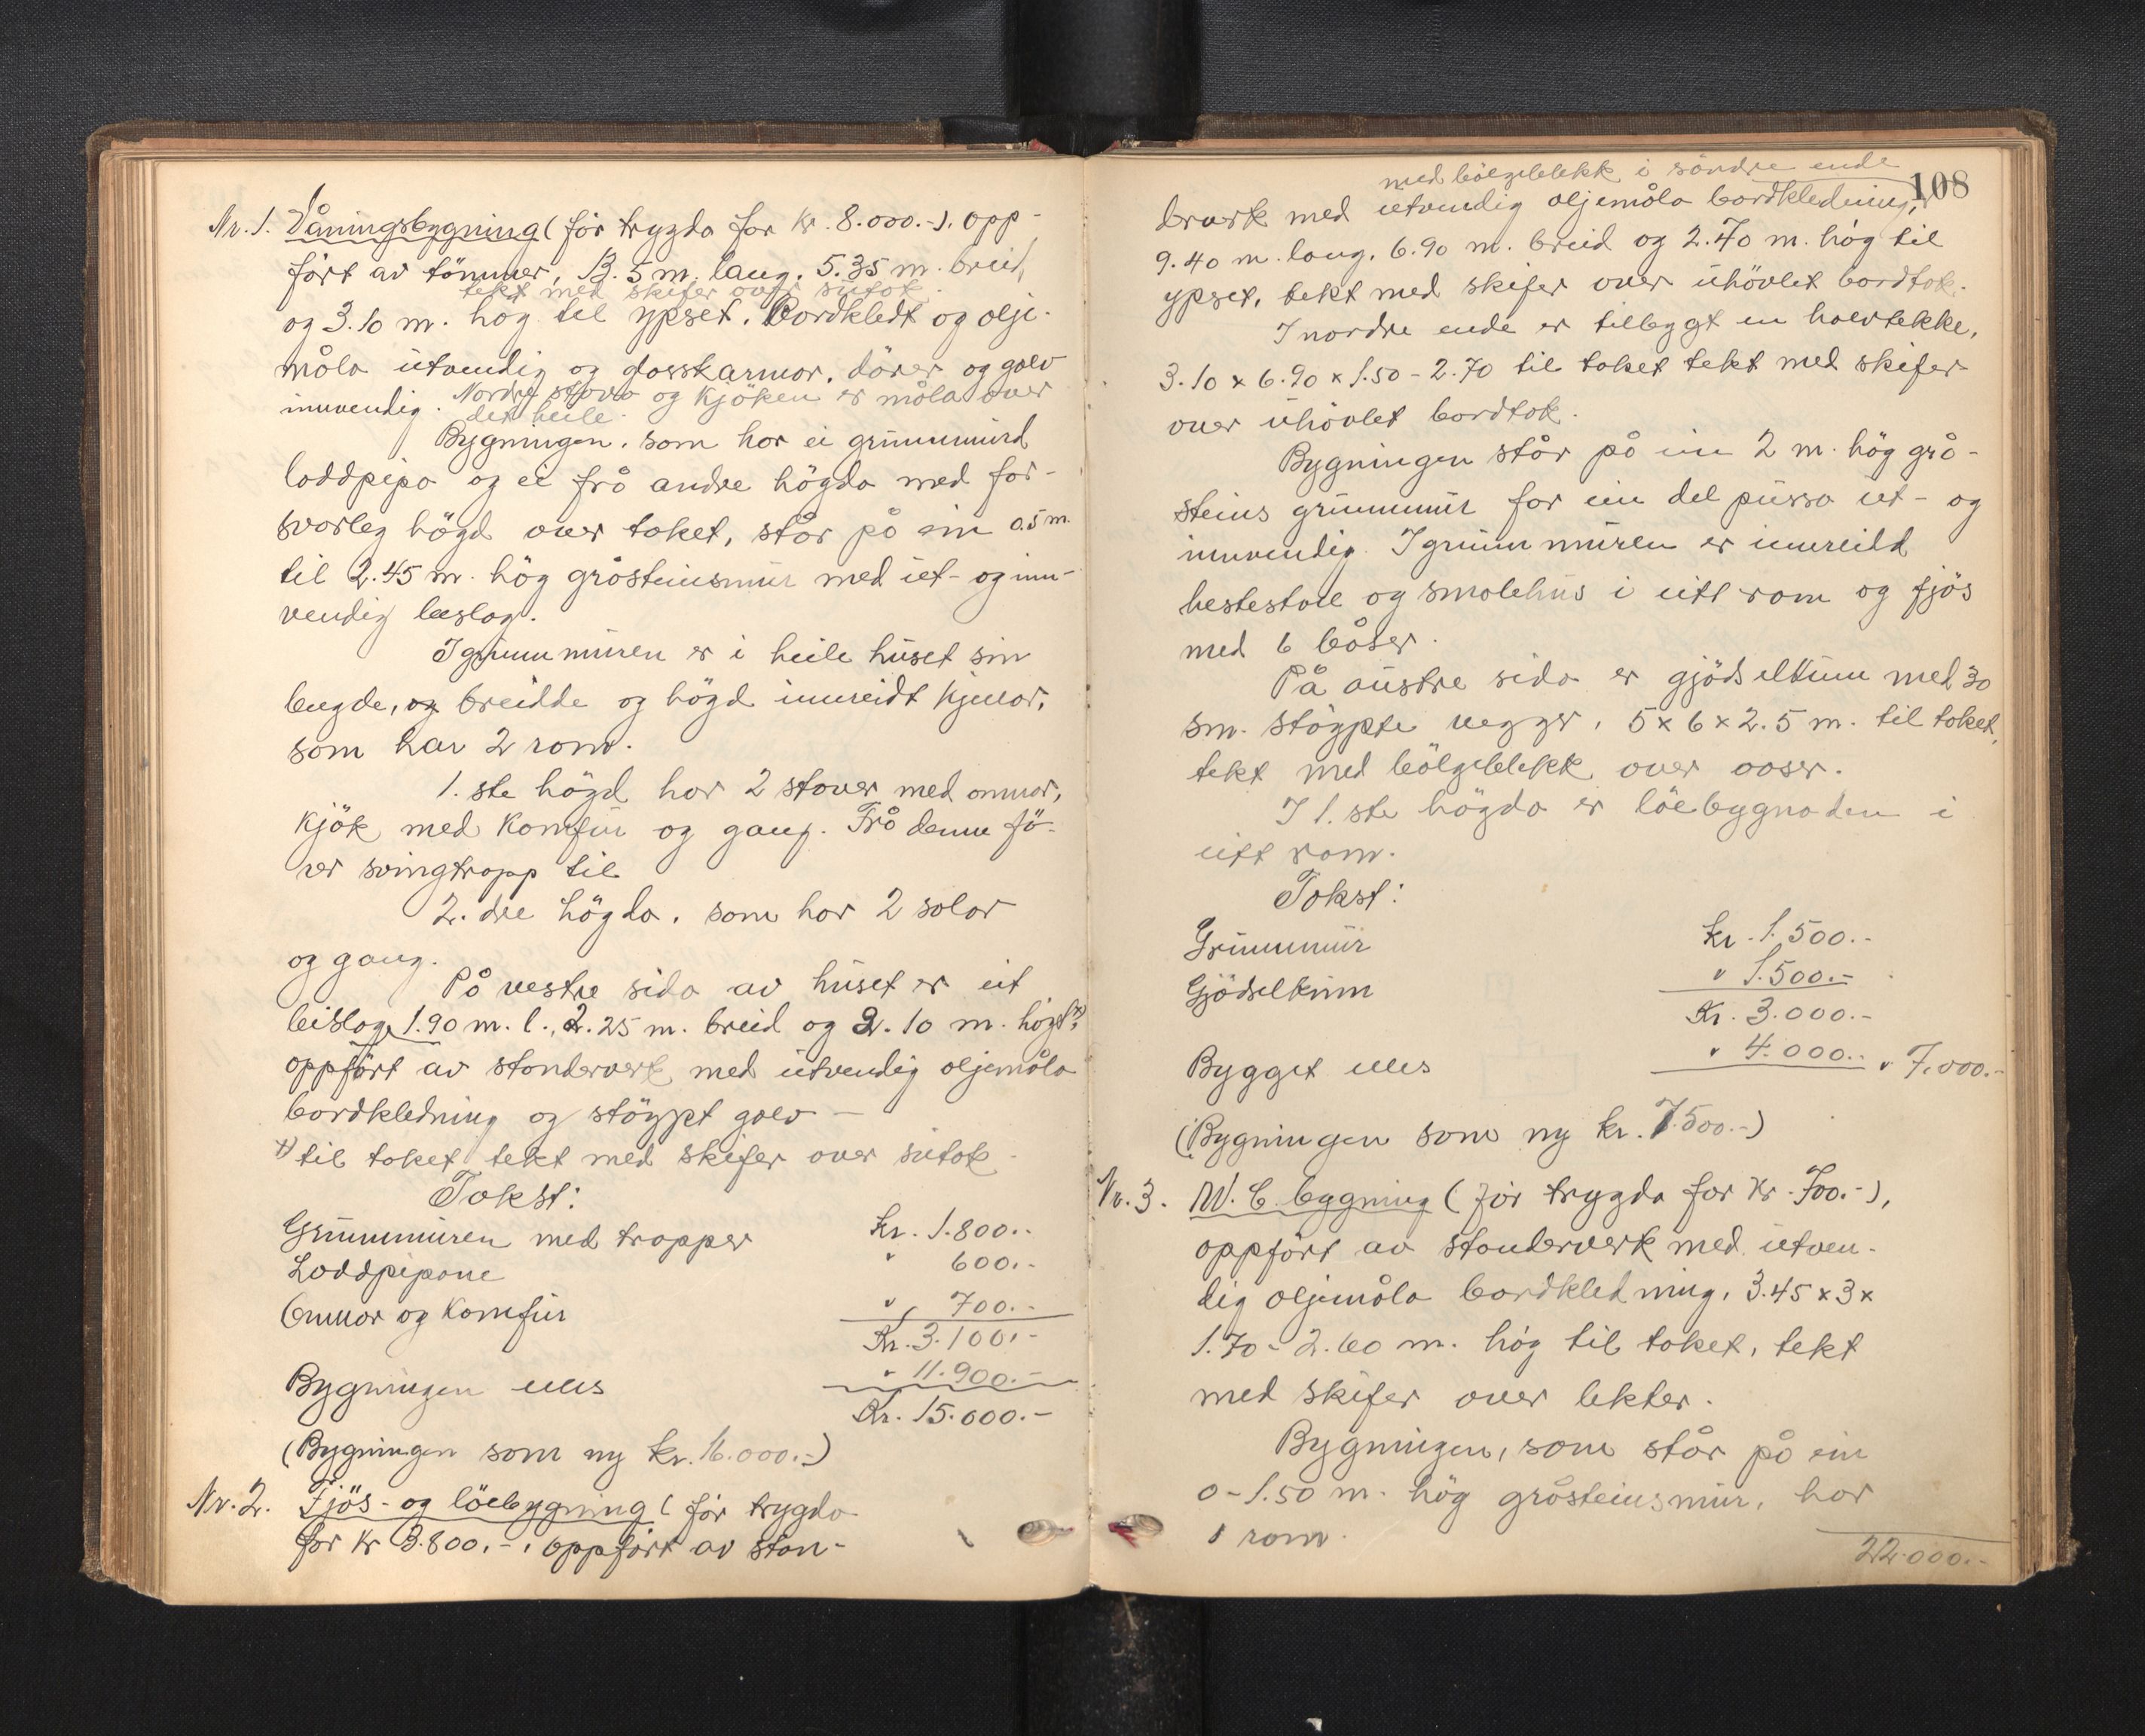 Nr. 1. Våningsbygning (før trygda for kr. 8.000.-), opp-
ført av tømmer, 13.5 m. lang, 5.35 m. breid,
tekt med skifer over sutak.
og 3.10 m. høg til ypset. Bordkledt og olje-
måla utvendig og glasskarmar, dører og golv
innvendig. Nordre stova og kjøken er måla over
det heile.
Bygningen, som har ei grunnmurd
loddpipa og ei frå andre høgda med for-
svarleg høgd over taket, står på ein 0.5 m.
til 2.45 m. høg gråsteinsmur med ut- og inn-
vendig beslag.
I grunnmuren er i heile huset sin
lengde, og breidde og høgd innreidt kjellar,
som har 2 rom.
1. ste høgd har 2 stover med omnar,
kjøk med komfur og gang. Frå denne fø-
rer svingtrapp til
2. dre høgda, som har 2 salar
og gang.
På vestre sida av huset er eit
beislag 1.90 m. l., 2.25 m. breid og 2.10 m. høgt x)
oppført av standerverk med utvendig oljemåla
bordkledning og støypt golv –
x) til taket, tekt med skifer over sutak.
Takst:
Grunnmuren med trapper kr. 1.800.-
Loddpipone " 600.-
Omnar og komfur " 700.-
Kr. 3.100.-
Bygningen elles " 11.900.-
Kr. 15.000.-
(Bygningen som ny kr. 16.000.-)
Nr. 2. Fjøs- og løebygning (før trygda
for kr 3.800.-, oppført av stan-
108
med bølgeblekk i søndre ende
derverk med utvendig oljemåla bordkledning,
9.40 m. lang, 6.90 m. breid og 2.70 m. høg til
ypset, tekt med skifer over uhøvlet bordtak.
I nordre ende er tilbygt en halvtekke,
3.10 x 6.90 x 1.50 - 2.70 til taket tekt med skifer
over uhøvlet bordtak.
Bygningen står på ein 2 m. høg grå-
steins grunnmur for ein del pussa ut- og
innvendig. I grunnmuren er innreidd
hestestall og smalehus i eitt rom og fjøs
med 6 båser.
På austre sida er gjødselkum med 30
sm. støypte vegger, 5 x 6 x 2.5 m. til taket,
tekt med bølgeblekk over aaser.
I 1. ste høgda er løebygnaden i
eitt rom.
Takst:
Grunnmur kr. 1.500.-
Gjødselkum " 1.500.-
Kr. 3.000.-
Bygget elles " 4.000.- " 7.000.-
(Bygningen som ny kr. 7.500.-)
Nr. 3. W. C. bygning (før trygda for kr. 700.-),
oppført av standerverk med utven-
dig oljemåla bordkledning, 3.45 x 3 x
1.70 - 2.60 m. høg til taket, tekt
med skifer over lekter.
Bygningen, som står på ein
0 - 1.50 m. høg gråsteinsmur, har
1 rom.
22.000.-